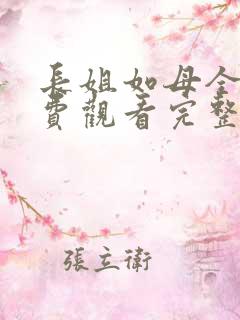 長姐如母全
費觀看完整
張立衛